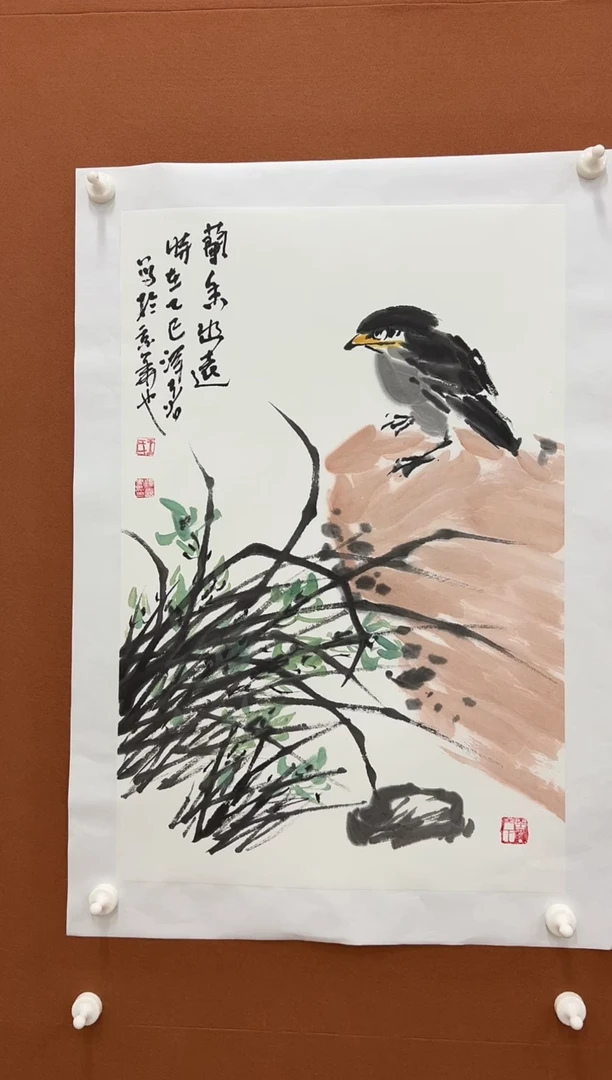 蘭香幽遠
時在乙巳
寫於京華也